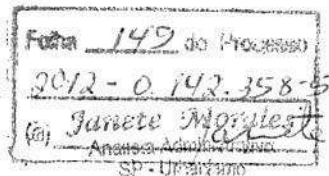 Folha 149 do Processo
2012 - 0.142.358-5
(a) Janete Morales
Analista Administrativo
SP - Urbanismo